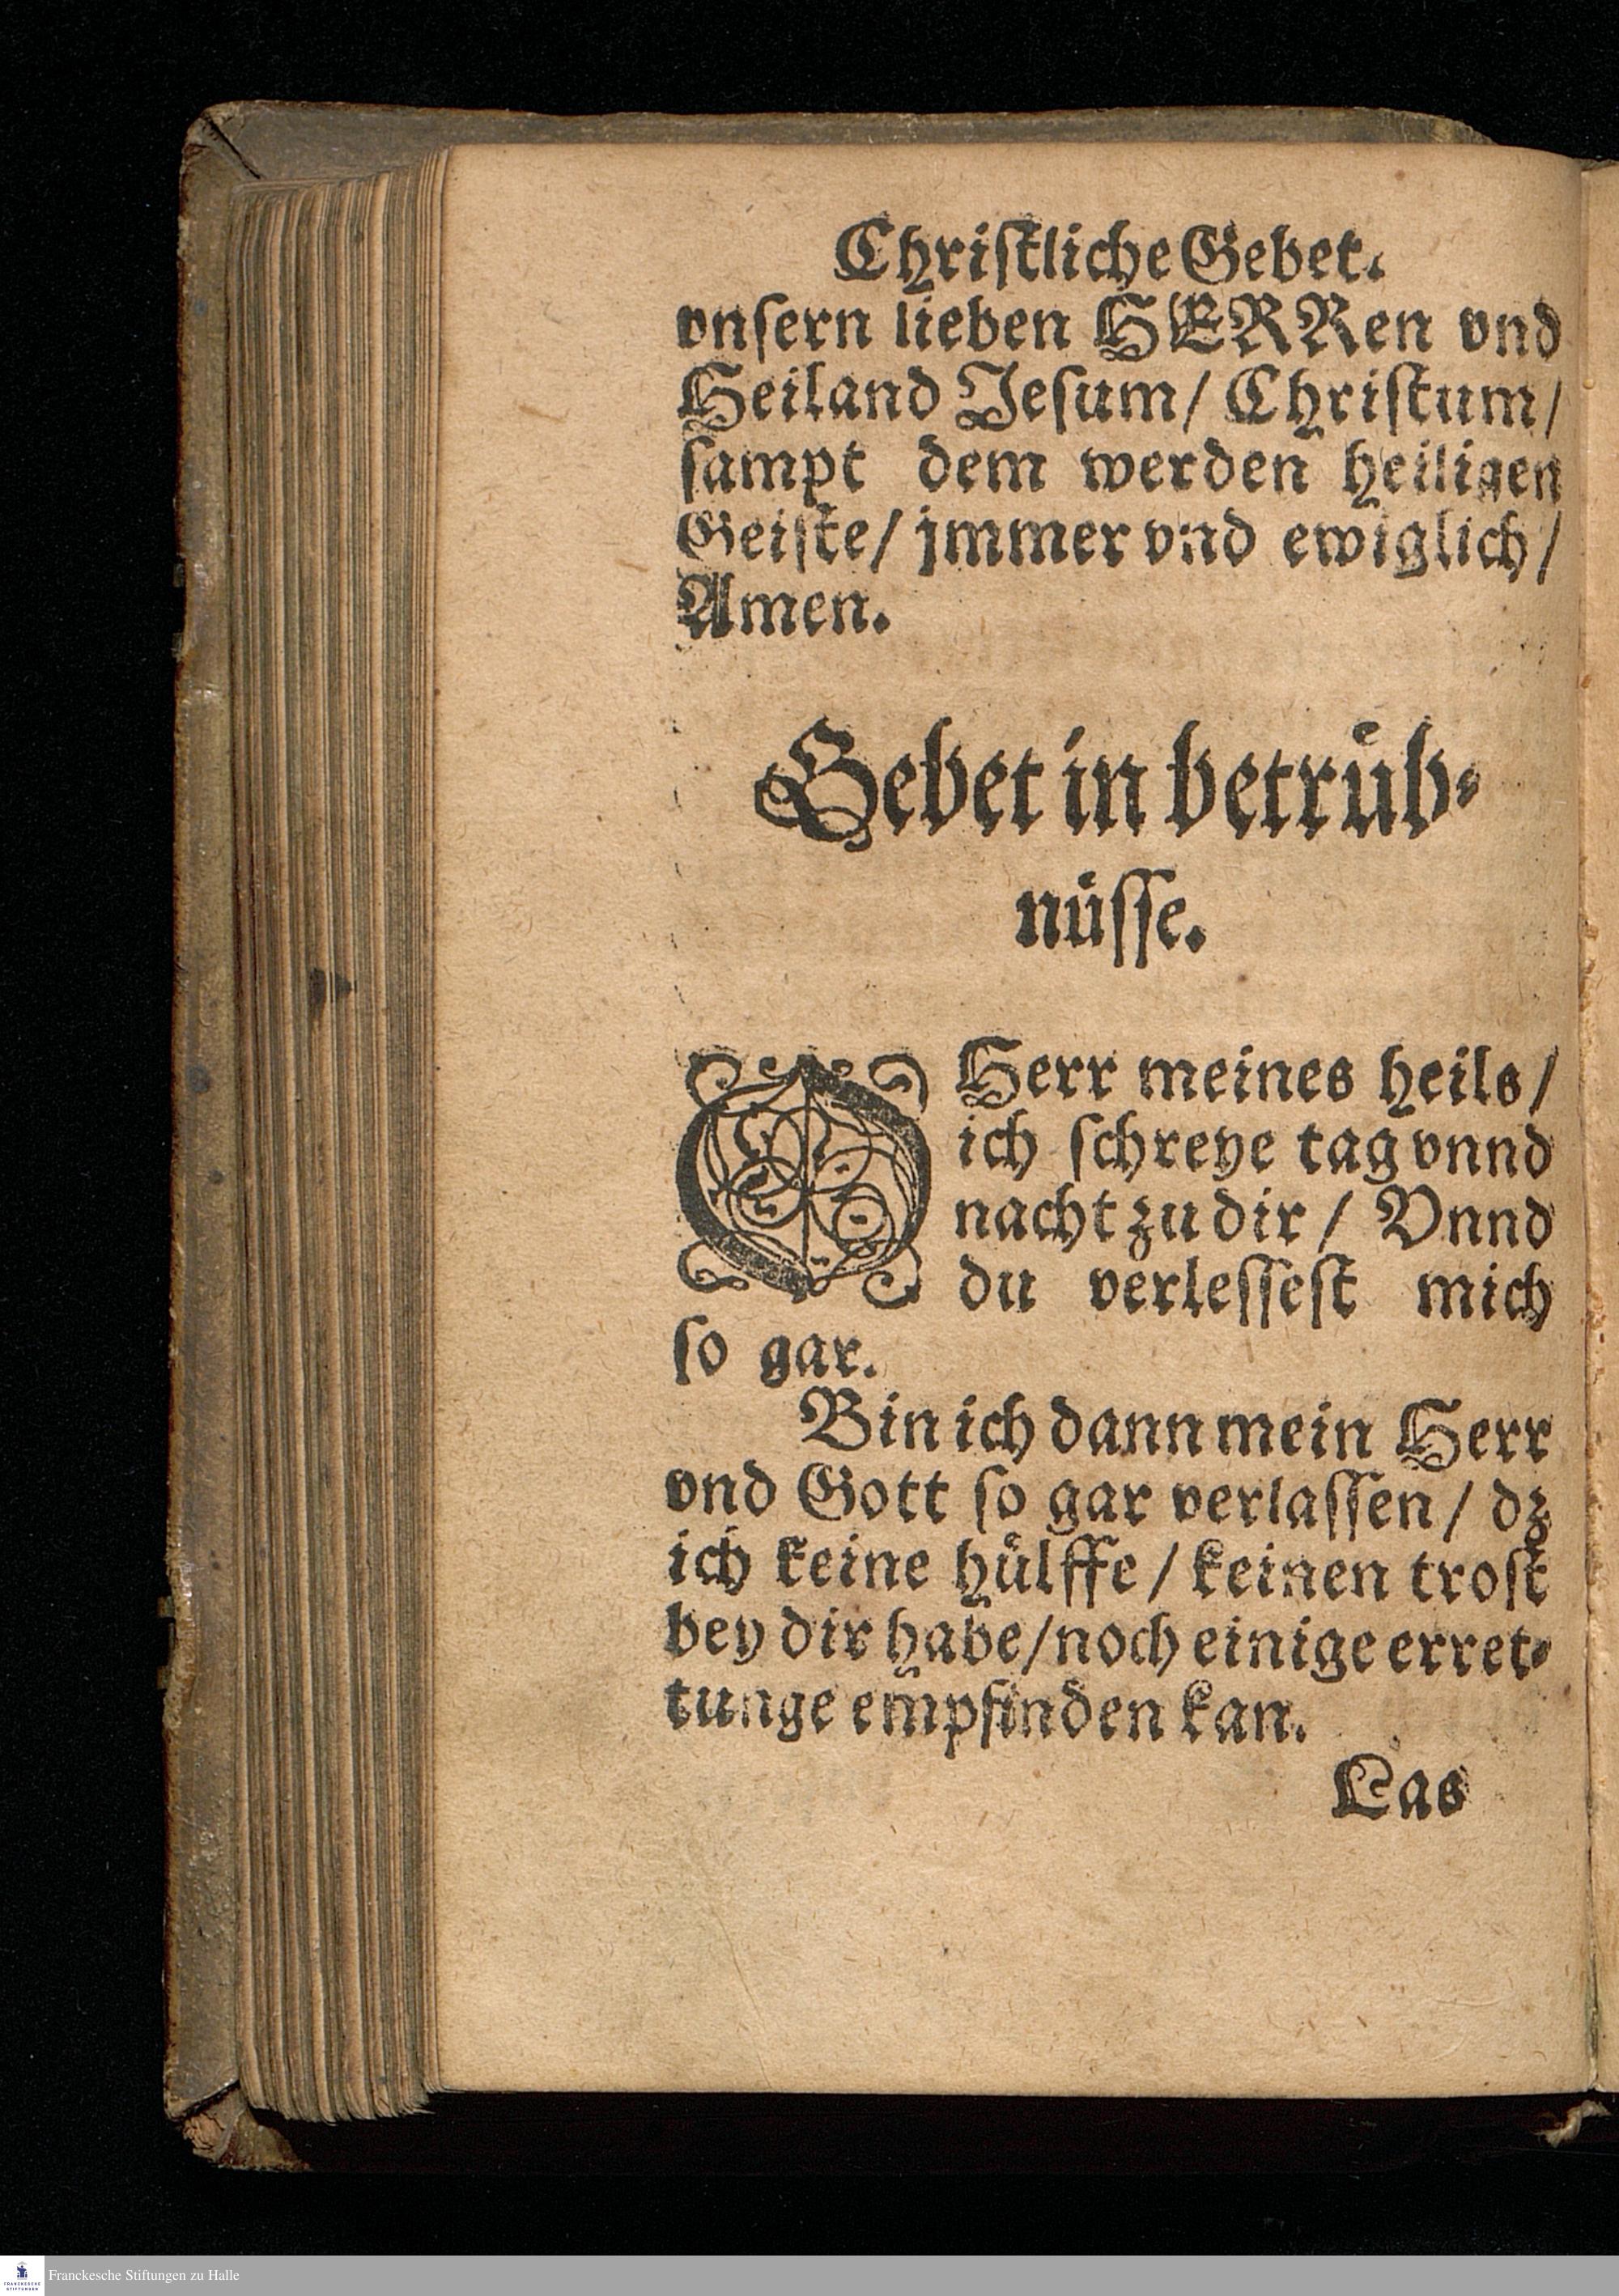 Chriſtliche Gebet.
vnſern lieben HERRen vnd
Heiland Jeſum/ Chriſtum/
ſampt dem werden heiligen
Geiſte/ jmmer vnd ewiglich/
Amen.
Gebet in betruͤb⸗
nuͤſſe.
O Herr meines heils/
ich ſchreye tag vnnd
nacht zu dir/ Vnnd
du verleſſeſt mich
ſo gar.
Bin ich dann mein Herr
vnd Gott ſo gar verlaſſen/ dz
ich keine huͤlffe/ keinen troſt
bey dir habe/ noch einige erret⸗
tunge empfinden kan.
Las
FRANCKESCHE
STIFTUNGEN
Franckesche Stiftungen zu Halle